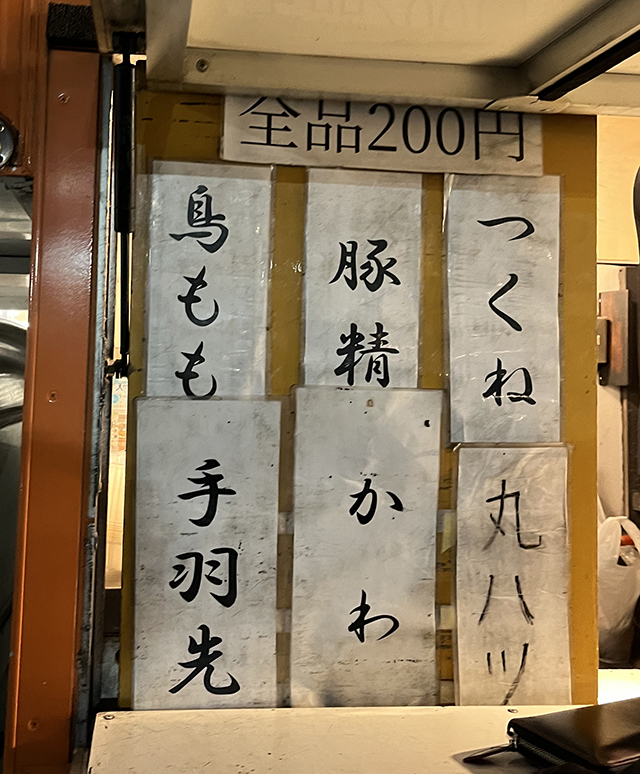 全品200円
つくね
豚精
鳥もも
丸ハツ
かわ
手羽先